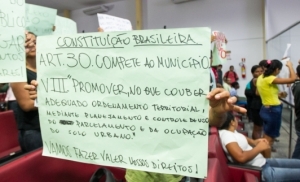 CONSTITUIÇÃO BRASILEIRA
ART. 30. COMPETE AO MUNICÍPIO
VIII "PROMOVER, NO QUE COUBER,
ADEQUADO ORDENAMENTO TERRITORIAL,
MEDIANTE PLANEJAMENTO E CONTROLE DO USO
DO PARCELAMENTO E DA OCUPAÇÃO
DO SOLO URBANO."
VAMOS FAZER VALER NOSSOS DIREITOS!